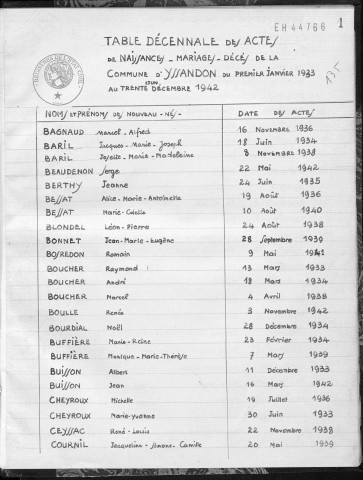 EH44766 1
TABLE DÉCENNALE DES ACTES
DE NAISSANCES - MARIAGES - DÉCÈS DE LA
COMMUNE D'YSSANDON DU PREMIER JANVIER 1933
AU TRENTE ET UN DÉCEMBRE 1942
135
NOMS ET PRÉNOMS DES NOUVEAU-NÉS - DATE DES ACTES
BAGNAUD Marcel-Alfred 16 Novembre 1936
BARIL Jacques-Marie-Joseph 18 Juin 1934
BARIL Josette-Marie-Madeleine 8 Novembre 1938
BEAUDENON Serge 22 Mai 1942
BERTHY Jeanne 24 Juin 1935
BESSAT Alice-Marie-Antoinette 19 Août 1936
BESSAT Marie-Colette 10 Août 1940
BLONDEL Léon-Pierre 24 Août 1938
BONNET Jean-Marie-Eugène 28 Septembre 1939
BOSREDON Romain 9 Mai 1941
BOUCHER Raymond 13 Mars 1933
BOUCHER André 18 Mars 1934
BOUCHER Marcel 4 Avril 1938
BOULLE Renée 3 Novembre 1942
BOURDIAL Noël 28 Décembre 1934
BUFFIÈRE Marie-Reine 23 Février 1934
BUFFIÈRE Monique-Marie-Thérèse 7 Mars 1939
BUISSON Albert 11 Décembre 1933
BUISSON Jean 16 Mars 1942
CHEYROUX Michelle 19 Juillet 1936
CHEYROUX Marie-Yvonne 30 Juin 1933
CEYSSAC René-Louis 22 Novembre 1938
COURNIL Jacqueline-Simone-Camille 20 Mai 1939